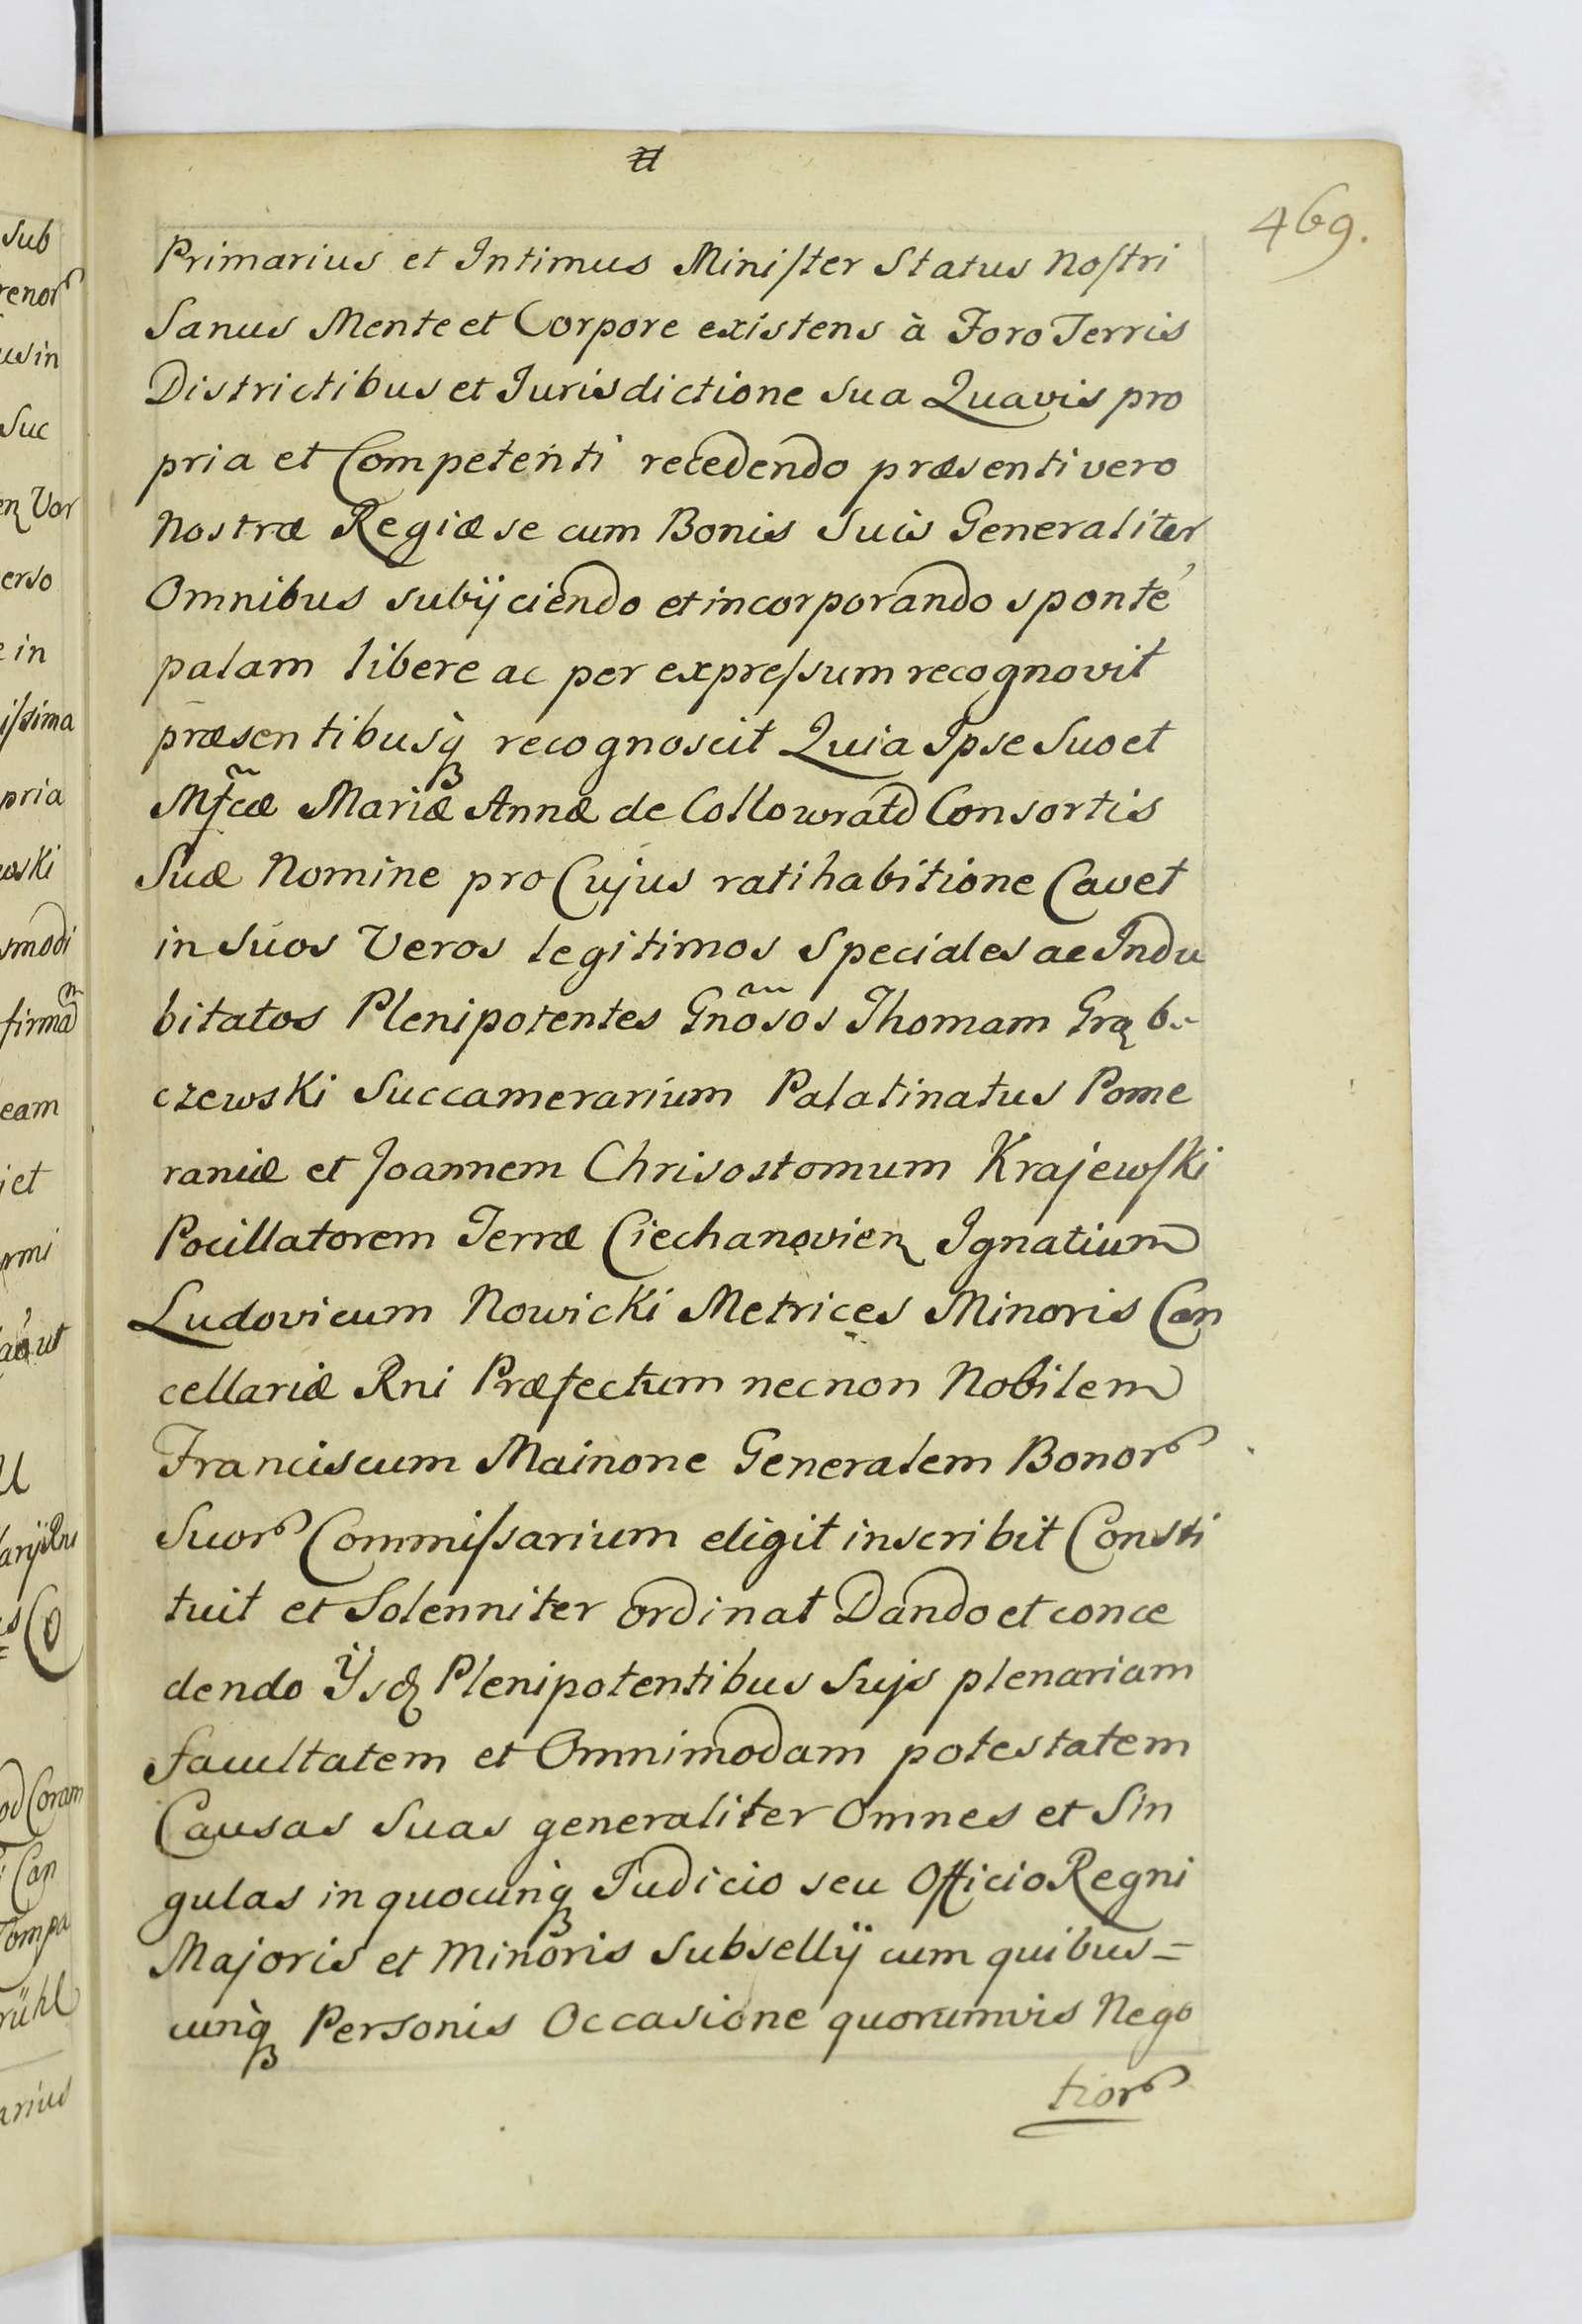 469.
Primarius et Intimus Minister Status Nostri
Sanus Mente et Corpore existens à Foro Terris
Districtibus et Jurisdictione sua Quavis pro
pria et Competenti recedendo præsenti vero
Nostræ Regiæ se cum Bonis Suis Generaliter
Omnibus subijciendo et incorporando sponté
palam libere ac per expressum recognovit
præsentibusq́ recognoscit Quia Ipse Suo et
Mf̃cæ Mariæ Annæ de Collowratd Consortis
Suæ Nomine pro Cujus ratihabitione Cavet
in Suos Veros legitimos Speciales ac Indu
bitatos Plenipotentes Gnõsos Thomam Grąb-
czewski Succamerarium Palatinatus Pome
raniæ et Joannem Chrisostomum Krajewski
Pocillatorem Terræ Ciechanovien Ignatium
Ludovicum Nowicki Metrices Minoris Can
cellariæ Rni Præfectum necnon Nobilem
Franciscum Mainone Generalem Bonor
Suor Commissarium eligit inscribit Consti
tuit et Solenniter ordinat Dando et conce
dendo Ijsd Plenipotentibus Suis plenariam
facultatem et Omnimodam potestatem
Causas Suas generaliter Omnes et Sin
gulas in quocunq́ Judicio seu Officio Regni
Majoris et Minoris Subsellij cum quibus=
cunq́ Personis Occasione quorumvis Nego
tior